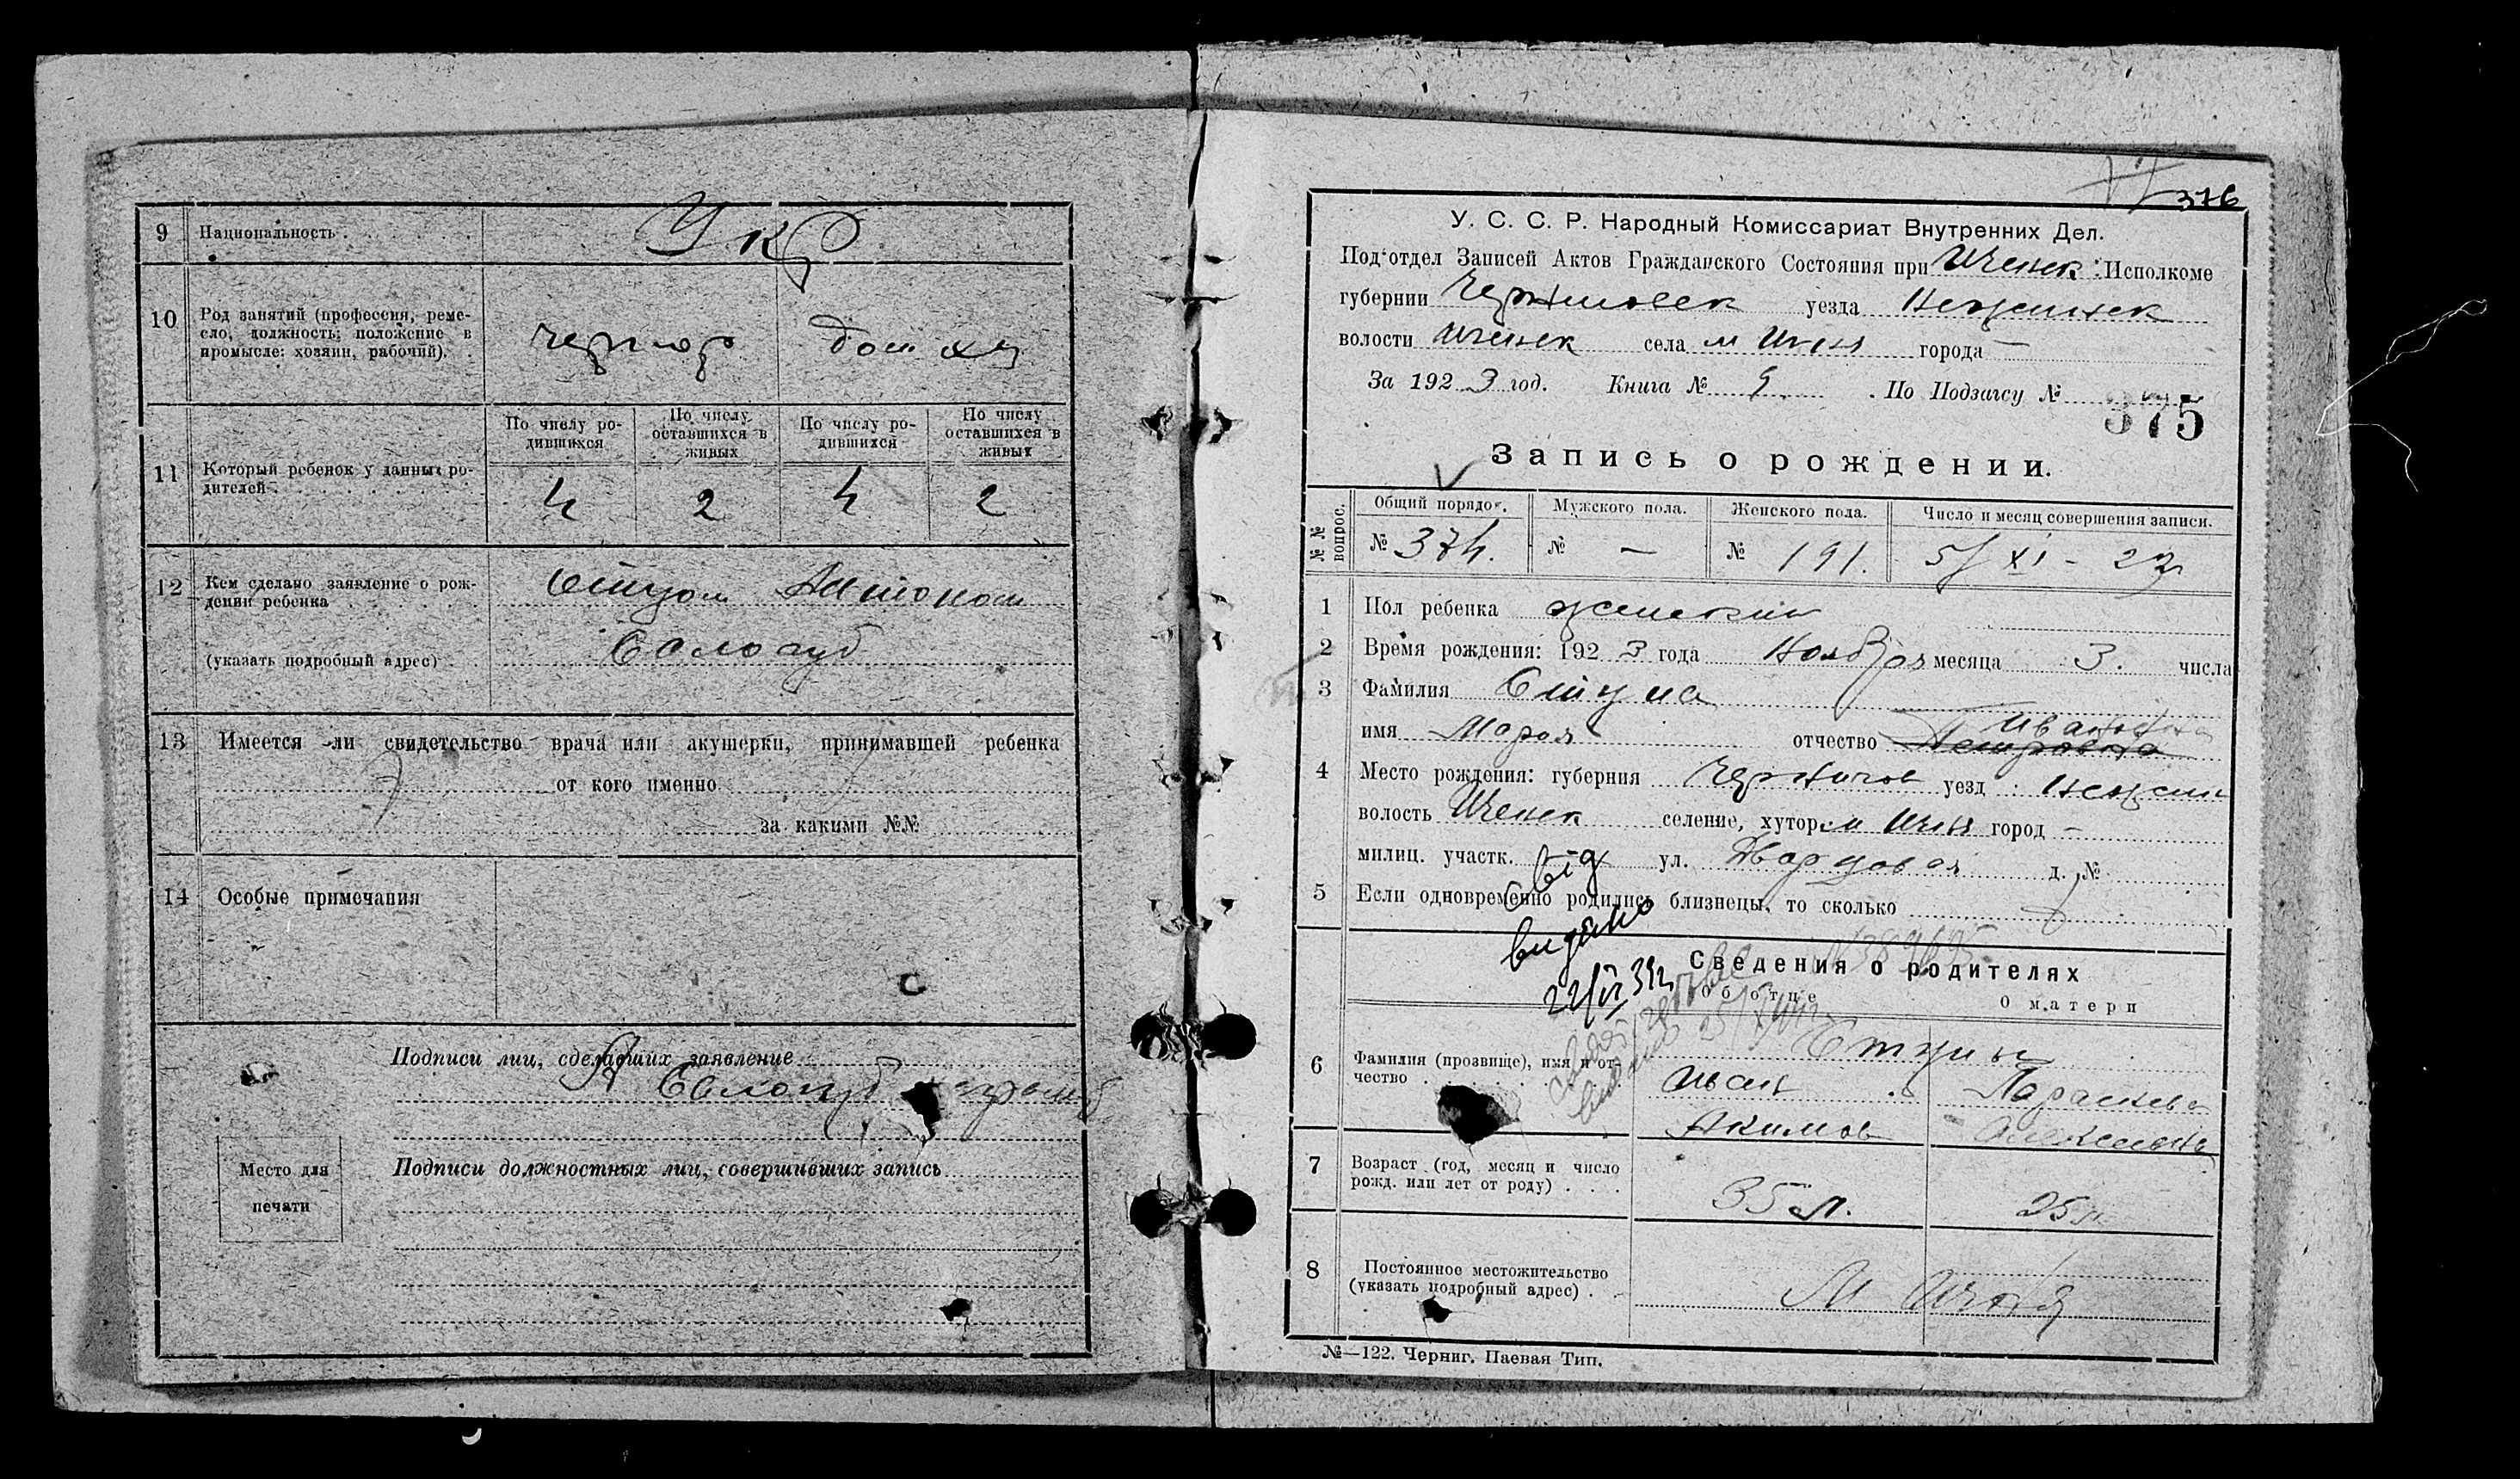 9 Национальность Укр
10 Род занятий (профессия, реме-
сло, должность, положение в
промысле: хозяин, рабочий). чернор дом хоз
11 Который ребенок у данных ро-
дителей
По числу ро-
дившихся
По числу
оставшихся в
живых
По числу ро-
дившихся
По числу
оставшихся в
живых
4 2 4 2
12 Кем сделано заявление о рож-
дении ребенка Отцом Антоном
(указать подробный адрес) Сологуб
13 Имеется ли свидетельство врача или акушерки, принимавшей ребенка
от кого именно
за какими №№
14 Особые примечания
Подписи лиц, сделавших заявление
Сологуб
Подписи должностных лиц, совершивших запись
Место для
печати
376
У. С. С. Р. Народный Комиссариат Внутренних Дел.
Под'отдел Записей Актов Гражданского Состояния при Иченск. Исполкоме
губернии Черниговск уезда Нежинск
волости Иченск села м Ичня города —
За 1923 год. Книга № По Подзагсу №
375
Запись о рождении.
№№ вопрос.
Общий порядо. Мужского пола. Женского пола. Число и месяц совершения записи.
№ 374. № — № 191. 5/XI - 23
1 Пол ребенка женский
2 Время рождения: 1923 года Ноября месяца 3. числа
3 Фамилия
Ивановна
имя Мария отчество Петровна
4 Место рождения: губерния Чернигов уезд Нежин
волость Иченск селение, хутор м Ичня город —
милиц. участк. ул. Дворцовая д. №
5 Если одновременно родились близнецы, то сколько
видано
22/VI 39г
Сведения о родителях
Об отце О матери
6 Фамилия (прозвище), имя и от-
чество
Иван Парасковья
Акимов
7 Возраст (год, месяц и число
рожд. или лет от роду) 35 л. 25 л
8 Постоянное местожительство
(указать подробный адрес) м Ичня
№—122. Черниг. Паевая Тип.